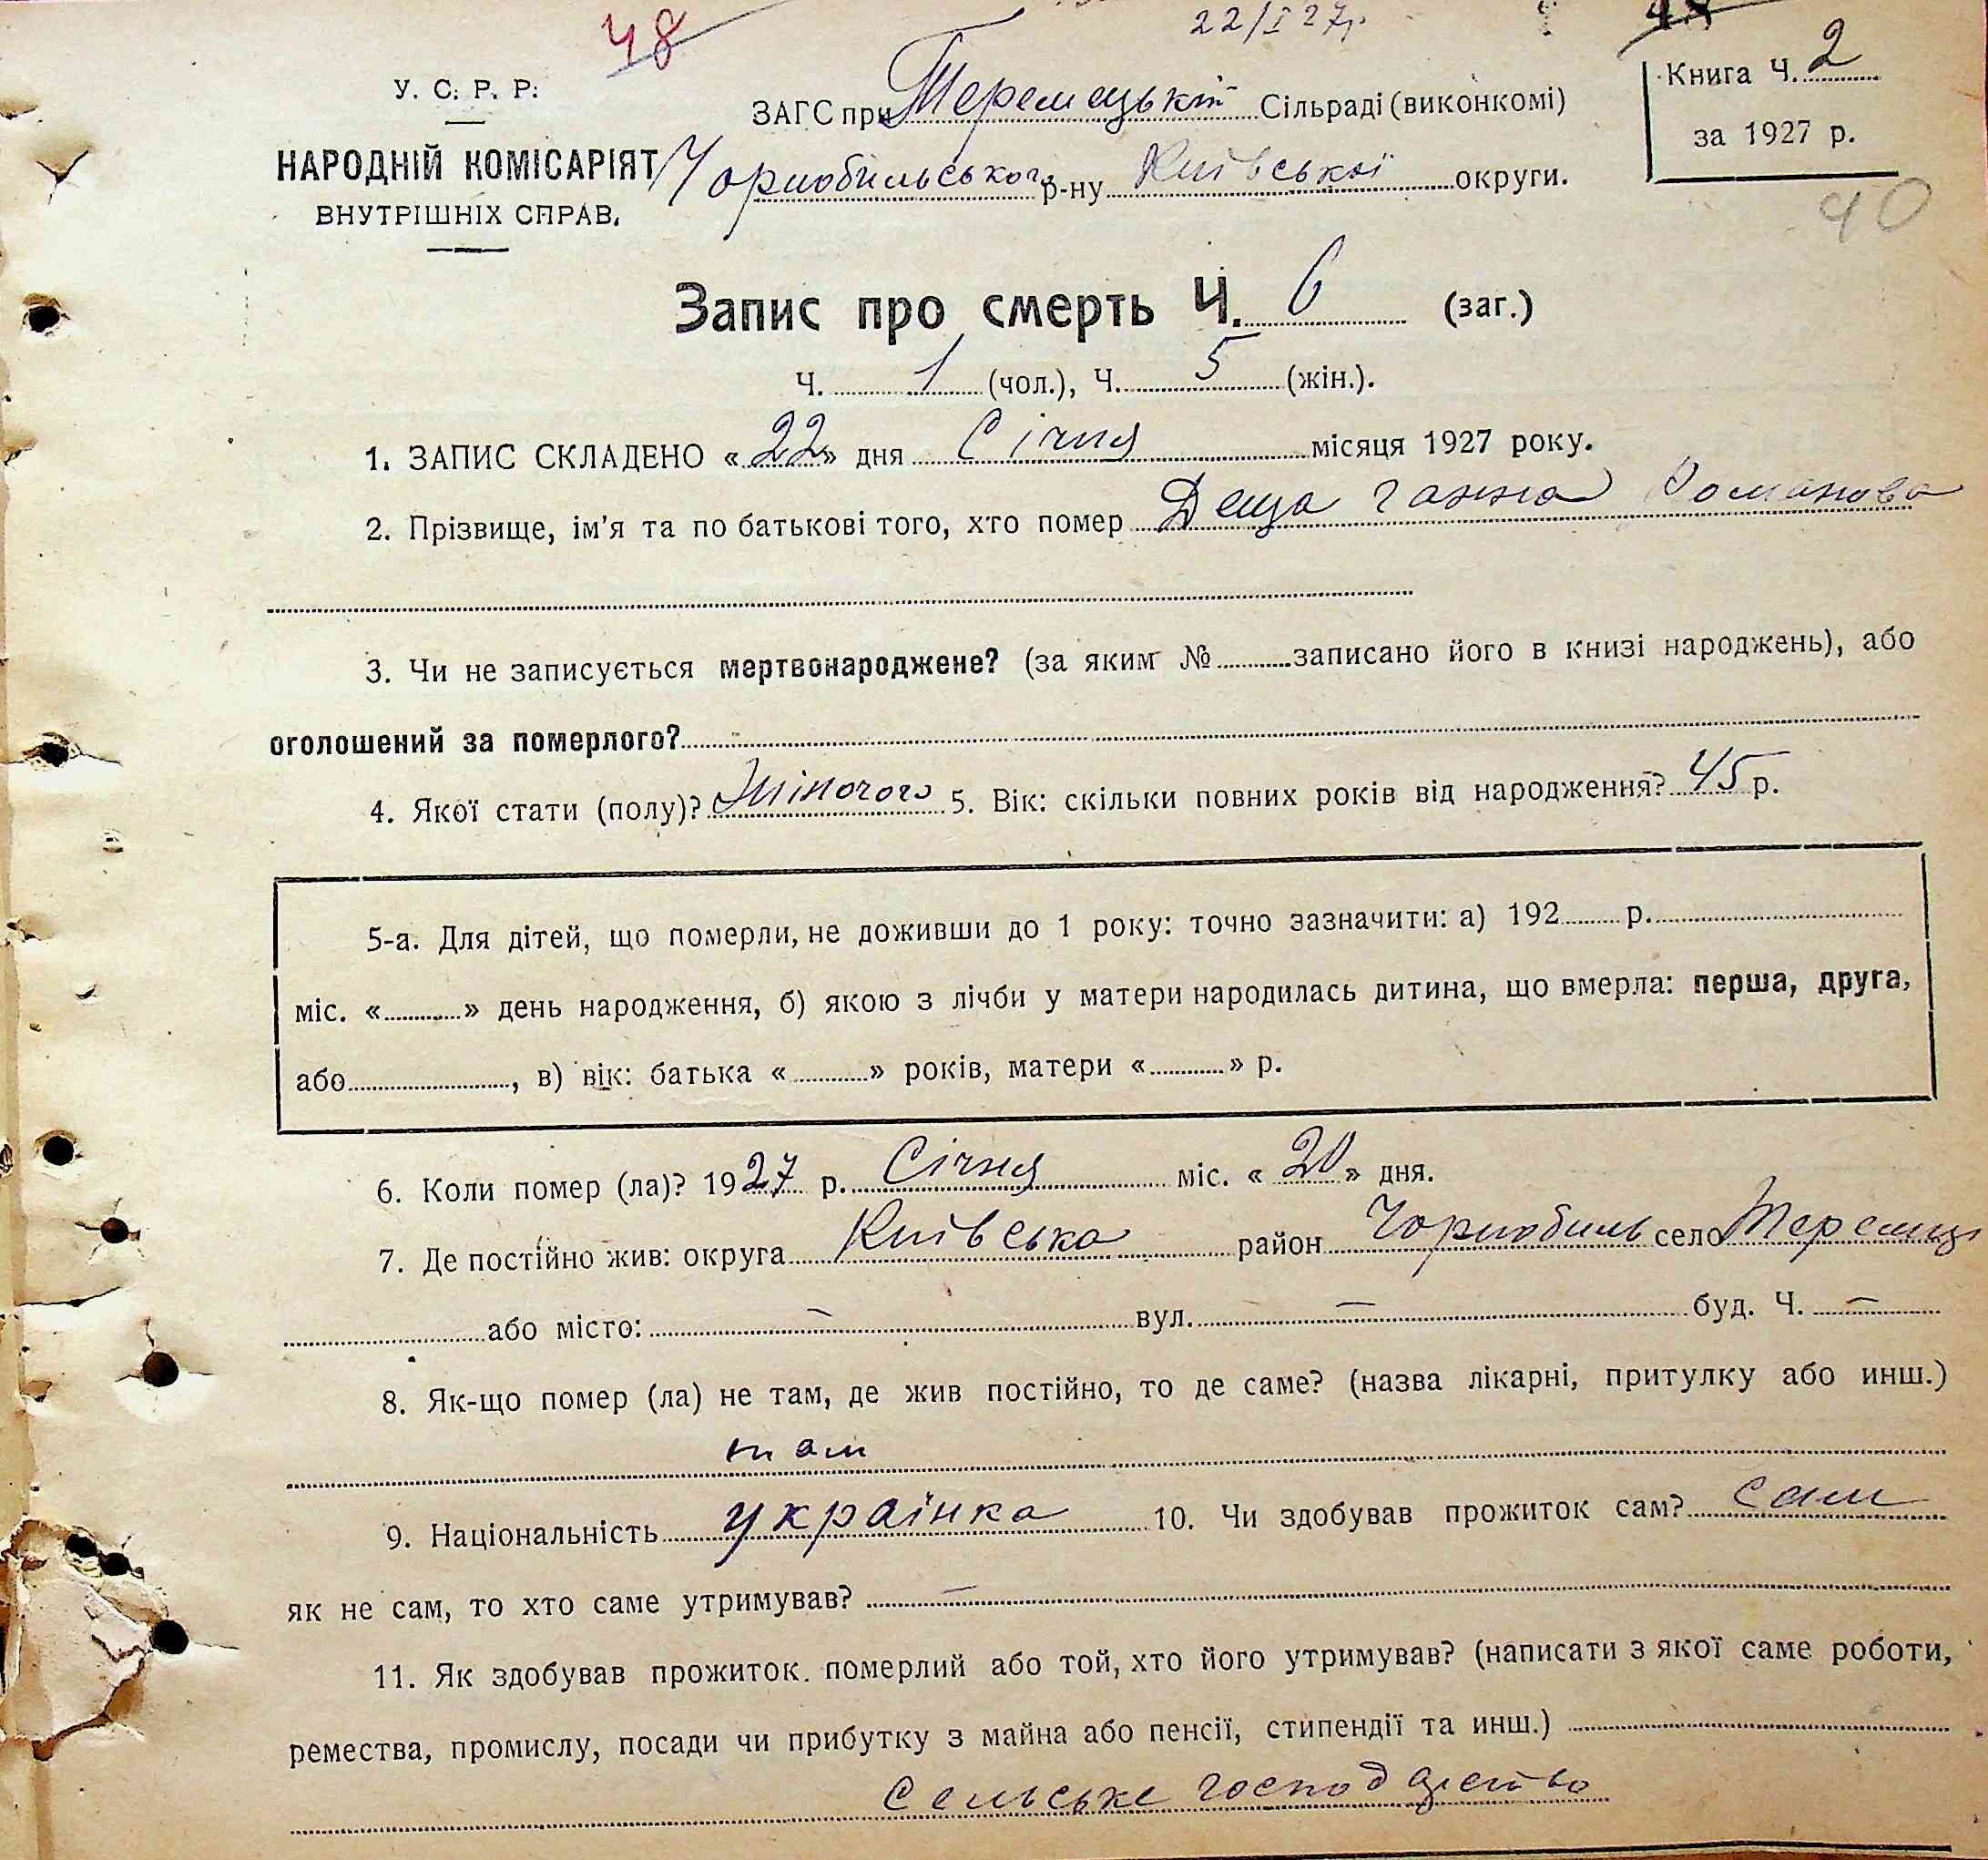 48
22/I 27р.
У. С. Р. Р.
НАРОДНІЙ КОМІСАРІЯТ
ВНУТРІШНІХ СПРАВ.
ЗАГС при Теремецькій Сільраді (виконкомі)
Чорнобильського р-ну Київської округи.
Книга Ч. 2
за 1927 р.
40
Запис про смерть Ч. 6 (заг.)
Ч. 1 (чол.), Ч. 5 (жін.).
1. ЗАПИС СКЛАДЕНО «22» дня Січня місяця 1927 року.
2. Прізвище, ім'я та по батькові того, хто помер Деща Ганна Романова
3. Чи не записується мертвонароджене? (за яким № записано його в книзі народжень), або
оголошений за померлого?
4. Якої стати (полу)? Жіночого 5. Вік: скільки повних років від народження? 45 р.
5-а. Для дітей, що померли, не доживши до 1 року: точно зазначити: а) 192 р.
міс. « » день народження, б) якою з лічби у матери народилась дитина, що вмерла: перша, друга,
або , в) вік: батька « » років, матери « » р.
6. Коли помер (ла)? 1927 р. Січня міс. «20» дня.
7. Де постійно жив: округа Київська район Чорнобиль село Теремці
або місто: — вул. — буд. Ч. —
8. Як-що помер (ла) не там, де жив постійно, то де саме? (назва лікарні, притулку або инш.)
там
9. Національність українка 10. Чи здобував прожиток сам? сам
як не сам, то хто саме утримував? —
11. Як здобував прожиток. померлий або той, хто його утримував? (написати з якої саме роботи,
ремества, промислу, посади чи прибутку з майна або пенсії, стипендії та инш.)
Сельське господарство